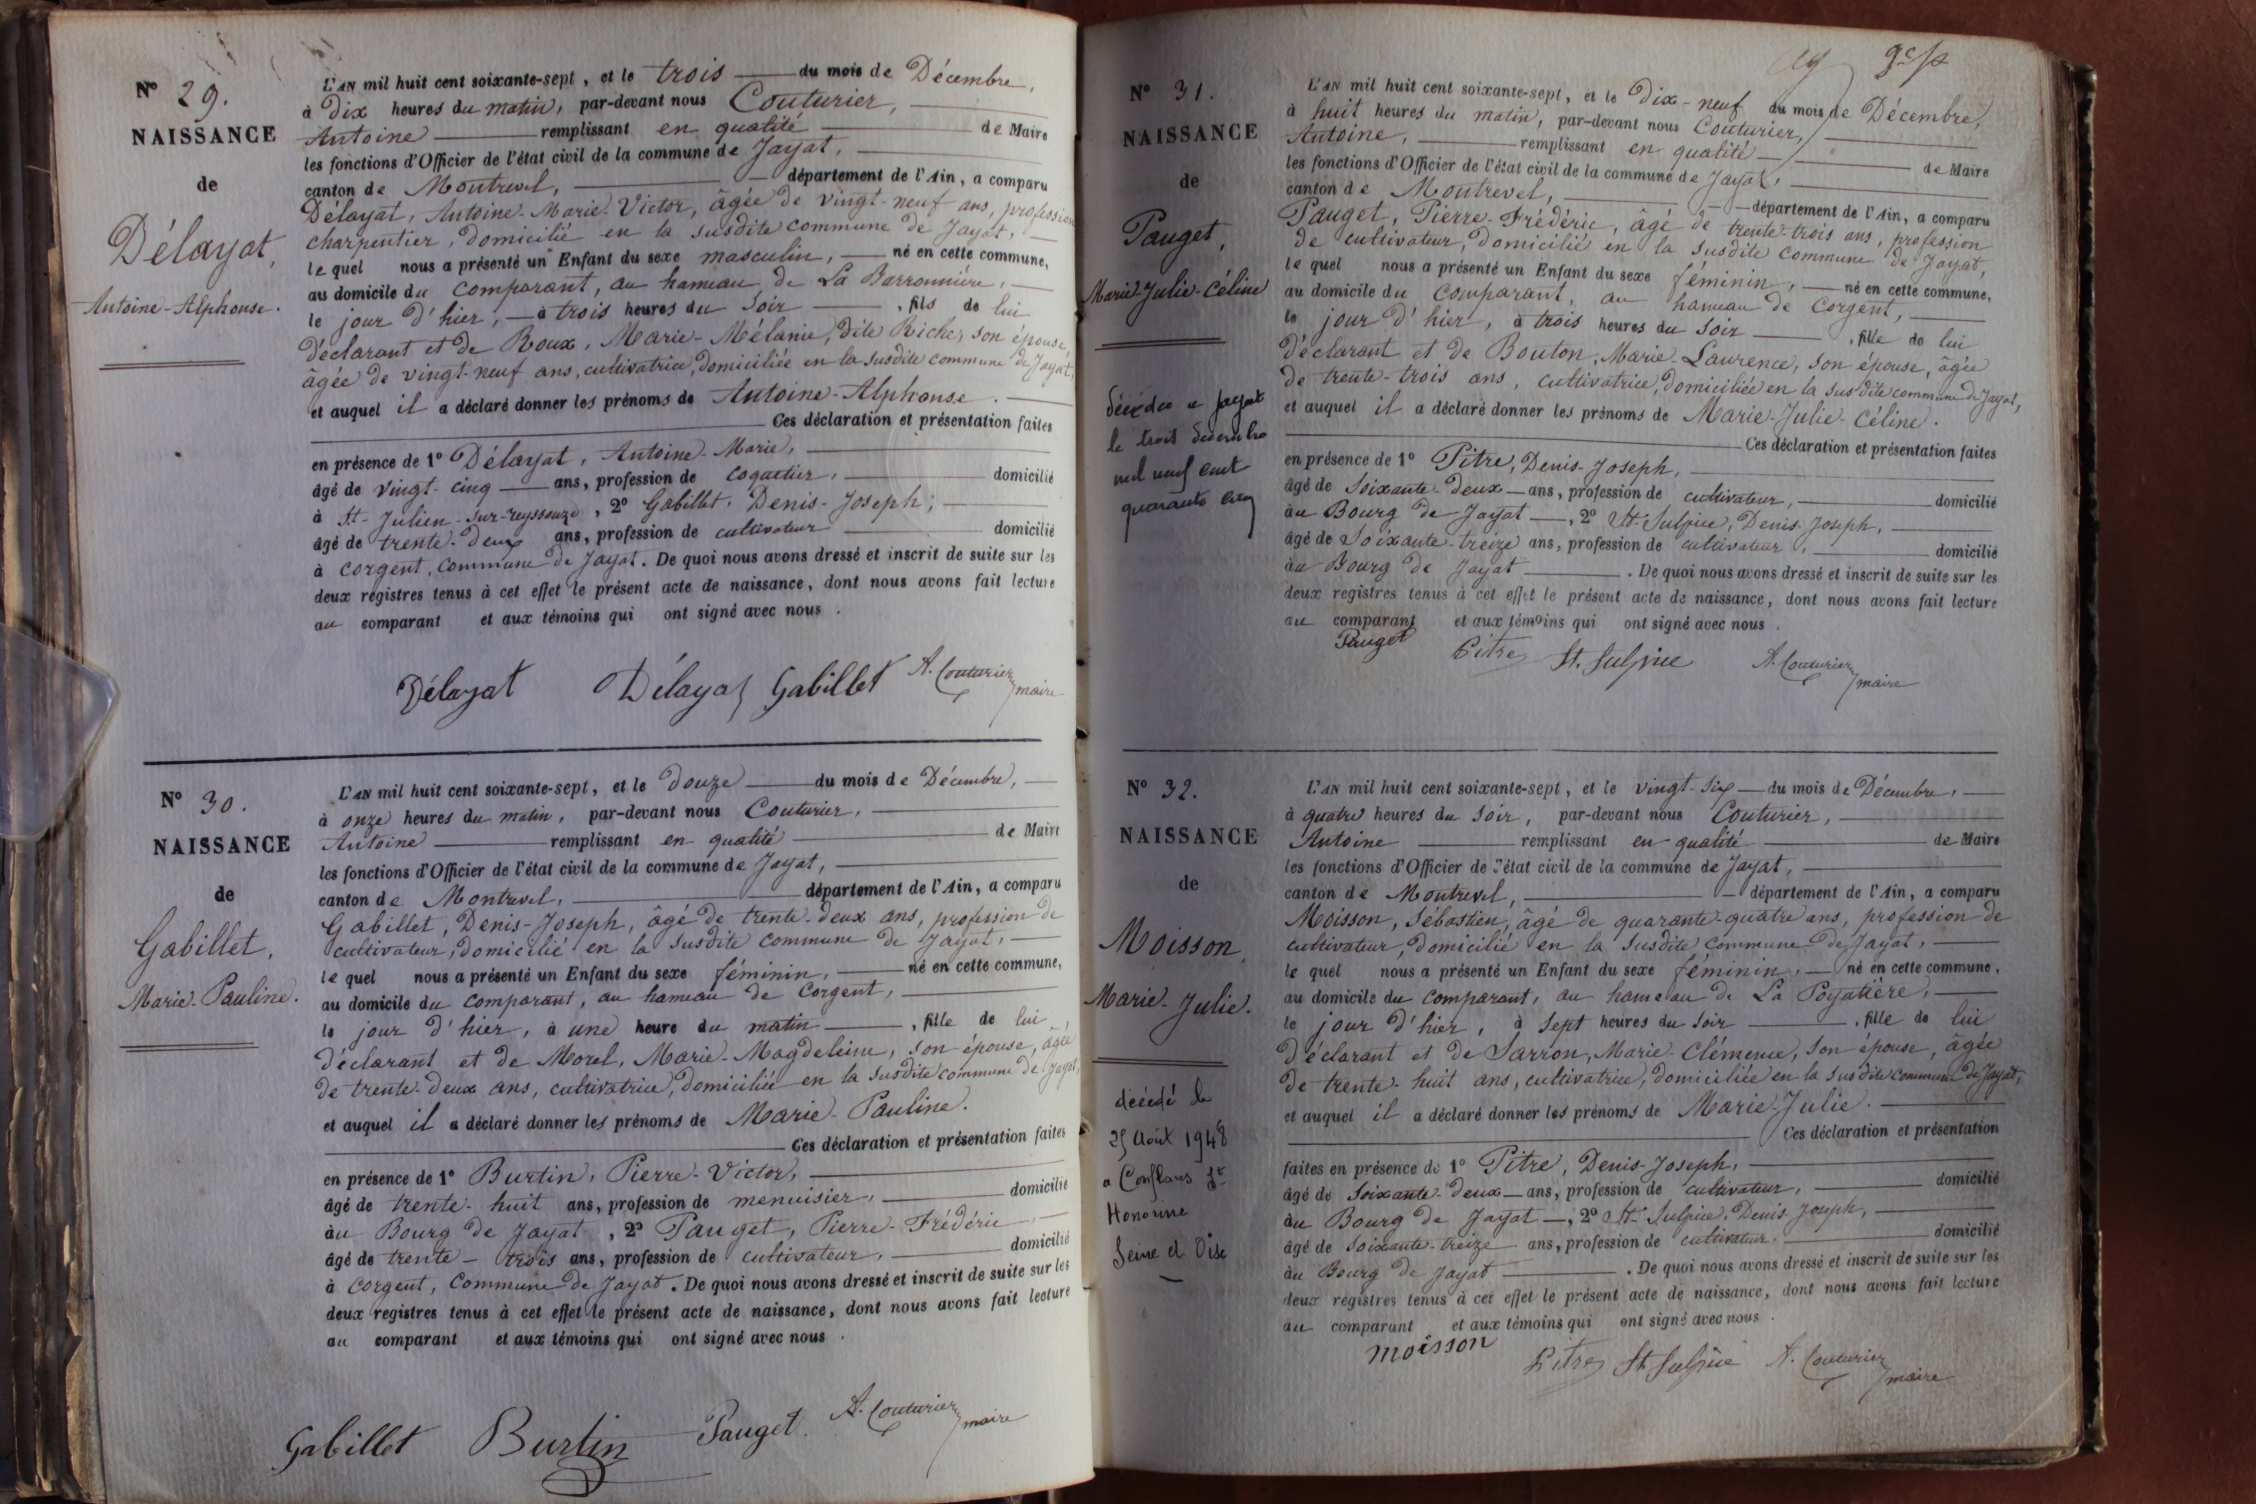 N° 29.
NAISSANCE
de
Délayat,
Antoine-Alphonse.
L'AN mil huit cent soixante-sept, et le trois du mois de Décembre,
à dix heures du matin, par-devant nous Couturier,
Antoine remplissant en qualité de Maire
les fonctions d'Officier de l'état civil de la commune de Jayat,
canton de Montrevel, département de l'Ain, a comparu
Délayat, Antoine-Marie-Victor, âgée de vingt-neuf ans, profession
charpentier, domicilié en la susdite commune de Jayat,
lequel nous a présenté un Enfant du sexe masculin, né en cette commune,
au domicile du comparant, au hameau de La Barronnière,
le jour d'hier, à trois heures du soir, fils de lui
déclarant et de Roux, Marie-Mélanie, dite Riche, son épouse,
âgée de vingt-neuf ans, cultivatrice, domiciliée en la susdite commune de Jayat,
et auquel il a déclaré donner les prénoms de Antoine-Alphonse.
Ces déclaration et présentation faites
en présence de 1° Délayat, Antoine-Marie,
âgé de vingt-cinq ans, profession de coquetier, domicilié
à St-Julien-sur-reyssouze, 2° Gabillet, Denis-Joseph,
âgé de trente-deux ans, profession de cultivateur domicilié
à Corgent, commune de Jayat. De quoi nous avons dressé et inscrit de suite sur les
deux registres tenus à cet effet le présent acte de naissance, dont nous avons fait lecture
au comparant et aux témoins qui ont signé avec nous.
Délayat Délayat Gabillet A. Couturier
maire
N° 30.
NAISSANCE
de
Gabillet,
Marie-Pauline.
L'AN mil huit cent soixante-sept, et le douze du mois de Décembre,
à onze heures du matin, par-devant nous Couturier,
Antoine remplissant en qualité de Maire
les fonctions d'Officier de l'état civil de la commune de Jayat,
canton de Montrevel, département de l'Ain, a comparu
Gabillet, Denis-Joseph, âgé de trente-deux ans, profession de
cultivateur, domicilié en la susdite commune de Jayat,
lequel nous a présenté un Enfant du sexe féminin, né en cette commune,
au domicile du comparant, au hameau de Corgent,
le jour d'hier, à une heure du matin, fille de lui,
déclarant et de Morel, Marie-Magdeleine, son épouse, âgée
de trente-deux ans, cultivatrice, domiciliée en la susdite commune de Jayat,
et auquel il a déclaré donner les prénoms de Marie-Pauline.
Ces déclaration et présentation faites
en présence de 1° Burtin, Pierre-Victor,
âgé de trente-huit ans, profession de menuisier, domicilié
au Bourg de Jayat, 2° Pauget, Pierre-Frédéric
âgé de trente-trois ans, profession de cultivateur, domicilié
à Corgent, Commune de Jayat. De quoi nous avons dressé et inscrit de suite sur les
deux registres tenus à cet effet le présent acte de naissance, dont nous avons fait lecture
au comparant et aux témoins qui ont signé avec nous.
Gabillet Burtin Pauget. A. Couturier
maire
N° 31.
NAISSANCE
de
Pauget,
Marie-Julie-Céline
décédée a Jayat
le trois décembre
mil neuf cent
quarante cinq
L'AN mil huit cent soixante-sept, et le dix-neuf du mois de Décembre,
à huit heures du matin, par-devant nous Couturier,
Antoine, remplissant en qualité de Maire
les fonctions d'Officier de l'état civil de la commune de Jayat,
canton de Montrevel, département de l'Ain, a comparu
Pauget, Pierre-Frédéric, âgé de trente-trois ans, profession
de cultivateur, domicilié en la susdite commune de Jayat,
lequel nous a présenté un Enfant du sexe féminin, né en cette commune,
au domicile du comparant, au hameau de Corgent,
le jour d'hier, à trois heures du soir, fille de lui
déclarant et de Bouton, Marie-Laurence, son épouse, âgée
de trente-trois ans, cultivatrice, domiciliée en la susdite commune de Jayat,
et auquel il a déclaré donner les prénoms de Marie-Julie-Céline.
Ces déclaration et présentation faites
en présence de 1° Pitre, Denis-Joseph,
âgé de Soixante-deux ans, profession de cultivateur, domicilié
au Bourg de Jayat, 2° St-Sulpice, Denis-Joseph,
âgé de Soixante-treize ans, profession de cultivateur, domicilié
au Bourg de Jayat. De quoi nous avons dressé et inscrit de suite sur les
deux registres tenus à cet effet le présent acte de naissance, dont nous avons fait lecture
au comparant et aux témoins qui ont signé avec nous.
Pauget Pitre St. Sulpice A. Couturier
maire
N° 32.
NAISSANCE
de
Moisson,
Marie-Julie.
décédé le
25 Août 1948
a Conflans Ste
Honorine
Seine et Oise
L'AN mil huit cent soixante-sept, et le vingt-six du mois de Décembre,
à quatre heures du soir, par-devant nous Couturier,
Antoine remplissant en qualité de Maire
les fonctions d'Officier de l'état civil de la commune de Jayat,
canton de Montrevel, département de l'Ain, a comparu
Moisson, Sébastien, âgé de quarante-quatre ans, profession de
cultivateur, domicilié en la susdite commune de Jayat,
lequel nous a présenté un Enfant du sexe féminin, né en cette commune,
au domicile du comparant, au hameau de La Poyatière,
le jour d'hier, à sept heures du soir, fille de lui
déclarant et de Sarron, Marie-Clémence, son épouse, âgée
de trente-huit ans, cultivatrice, domiciliée en la susdite commune de Jayat,
et auquel il a déclaré donner les prénoms de Marie-Julie.
Ces déclaration et présentation
faites en présence de 1° Pitre, Denis-Joseph,
âgé de Soixante-deux ans, profession de cultivateur, domicilié
au Bourg de Jayat, 2° St-Sulpice, Denis-Joseph,
âgé de Soixante-treize ans, profession de cultivateur. domicilié
au Bourg de Jayat. De quoi nous avons dressé et inscrit de suite sur les
deux registres tenus à cet effet le présent acte de naissance, dont nous avons fait lecture
au comparant et aux témoins qui ont signé avec nous.
moisson Pitre St Sulpice A. Couturier
maire